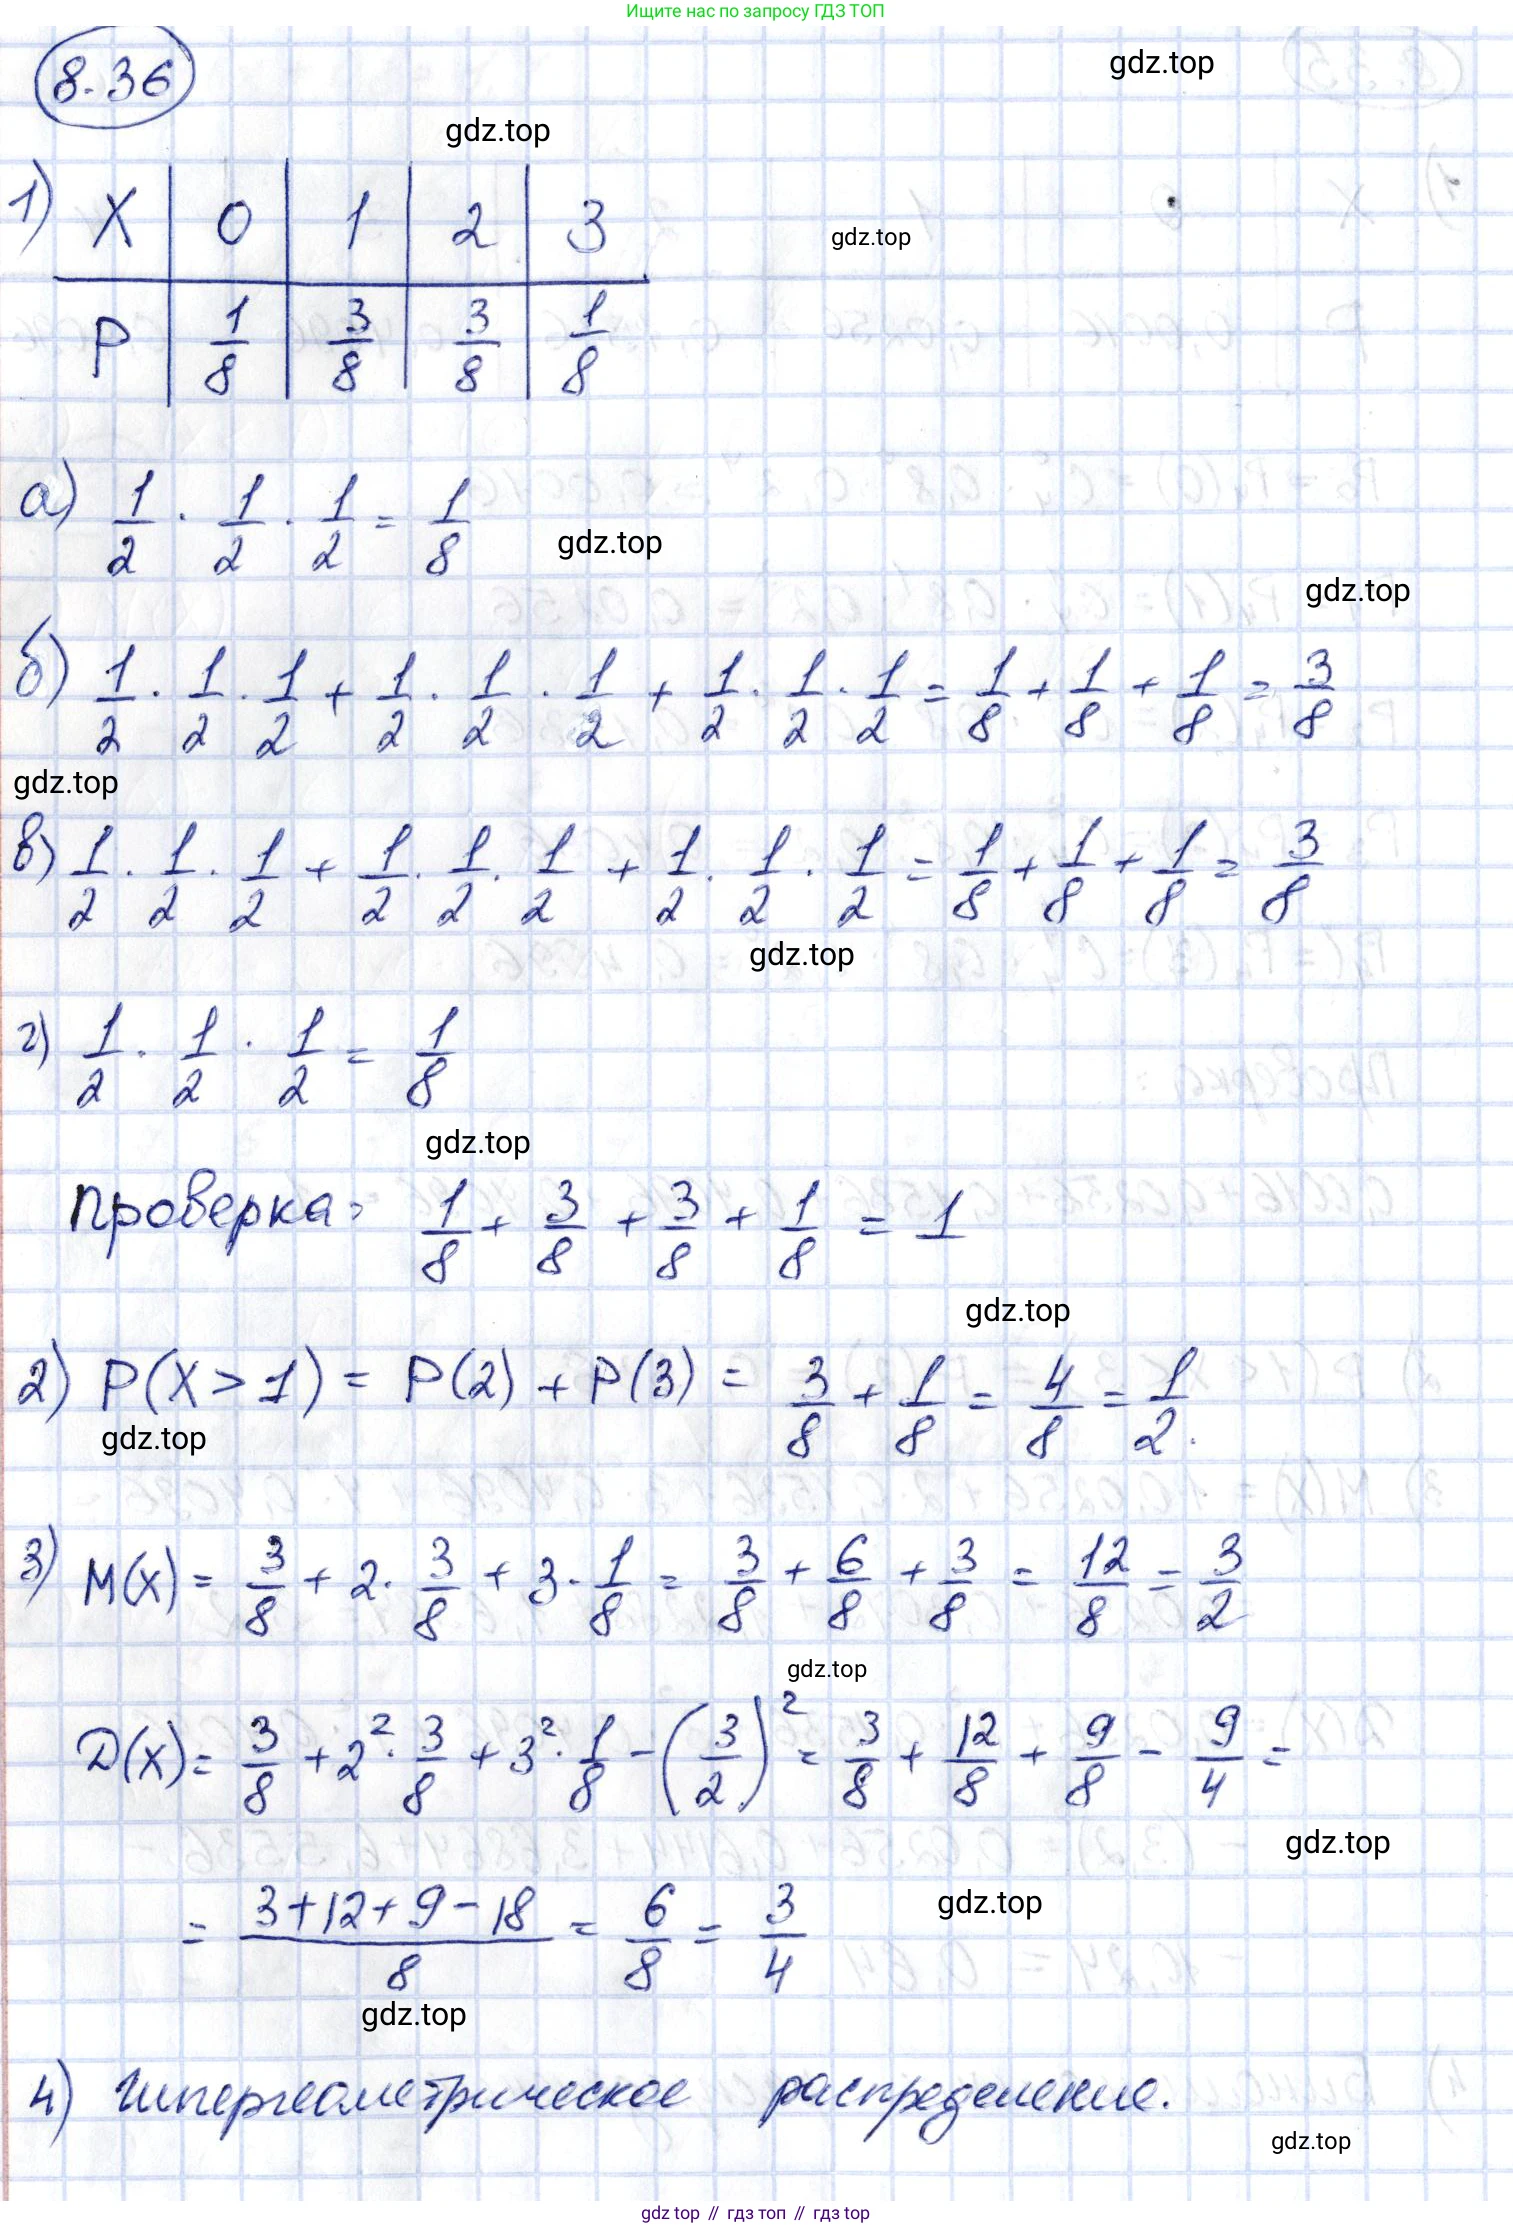 Ищите нас по запросу ГДЗ ТОП
8.36
gdz.top
gdz.top
1) X | 0 | 1 | 2 | 3
gdz.top
P | 1/8 | 3/8 | 3/8 | 1/8
а) 1/2 · 1/2 · 1/2 = 1/8
gdz.top
gdz.top
б) 1/2 · 1/2 · 1/2 + 1/2 · 1/2 · 1/2 + 1/2 · 1/2 · 1/2 = 1/8 + 1/8 + 1/8 = 3/8
gdz.top
в) 1/2 · 1/2 · 1/2 + 1/2 · 1/2 · 1/2 + 1/2 · 1/2 · 1/2 = 1/8 + 1/8 + 1/8 = 3/8
gdz.top
г) 1/2 · 1/2 · 1/2 = 1/8
gdz.top
Проверка: 1/8 + 3/8 + 3/8 + 1/8 = 1
gdz.top
2) P(X > 1) = P(2) + P(3) = 3/8 + 1/8 = 4/8 = 1/2.
gdz.top
3) M(X) = 3/8 + 2 · 3/8 + 3 · 1/8 = 3/8 + 6/8 + 3/8 = 12/8 = 3/2
gdz.top
D(X) = 3/8 + 2² · 3/8 + 3² · 1/8 - (3/2)² = 3/8 + 12/8 + 9/8 - 9/4 =
gdz.top
= (3 + 12 + 9 - 18)/8 = 6/8 = 3/4
gdz.top
gdz.top
4) Гипергеометрическое распределение.
gdz.top
gdz top // гдз топ // гдз top